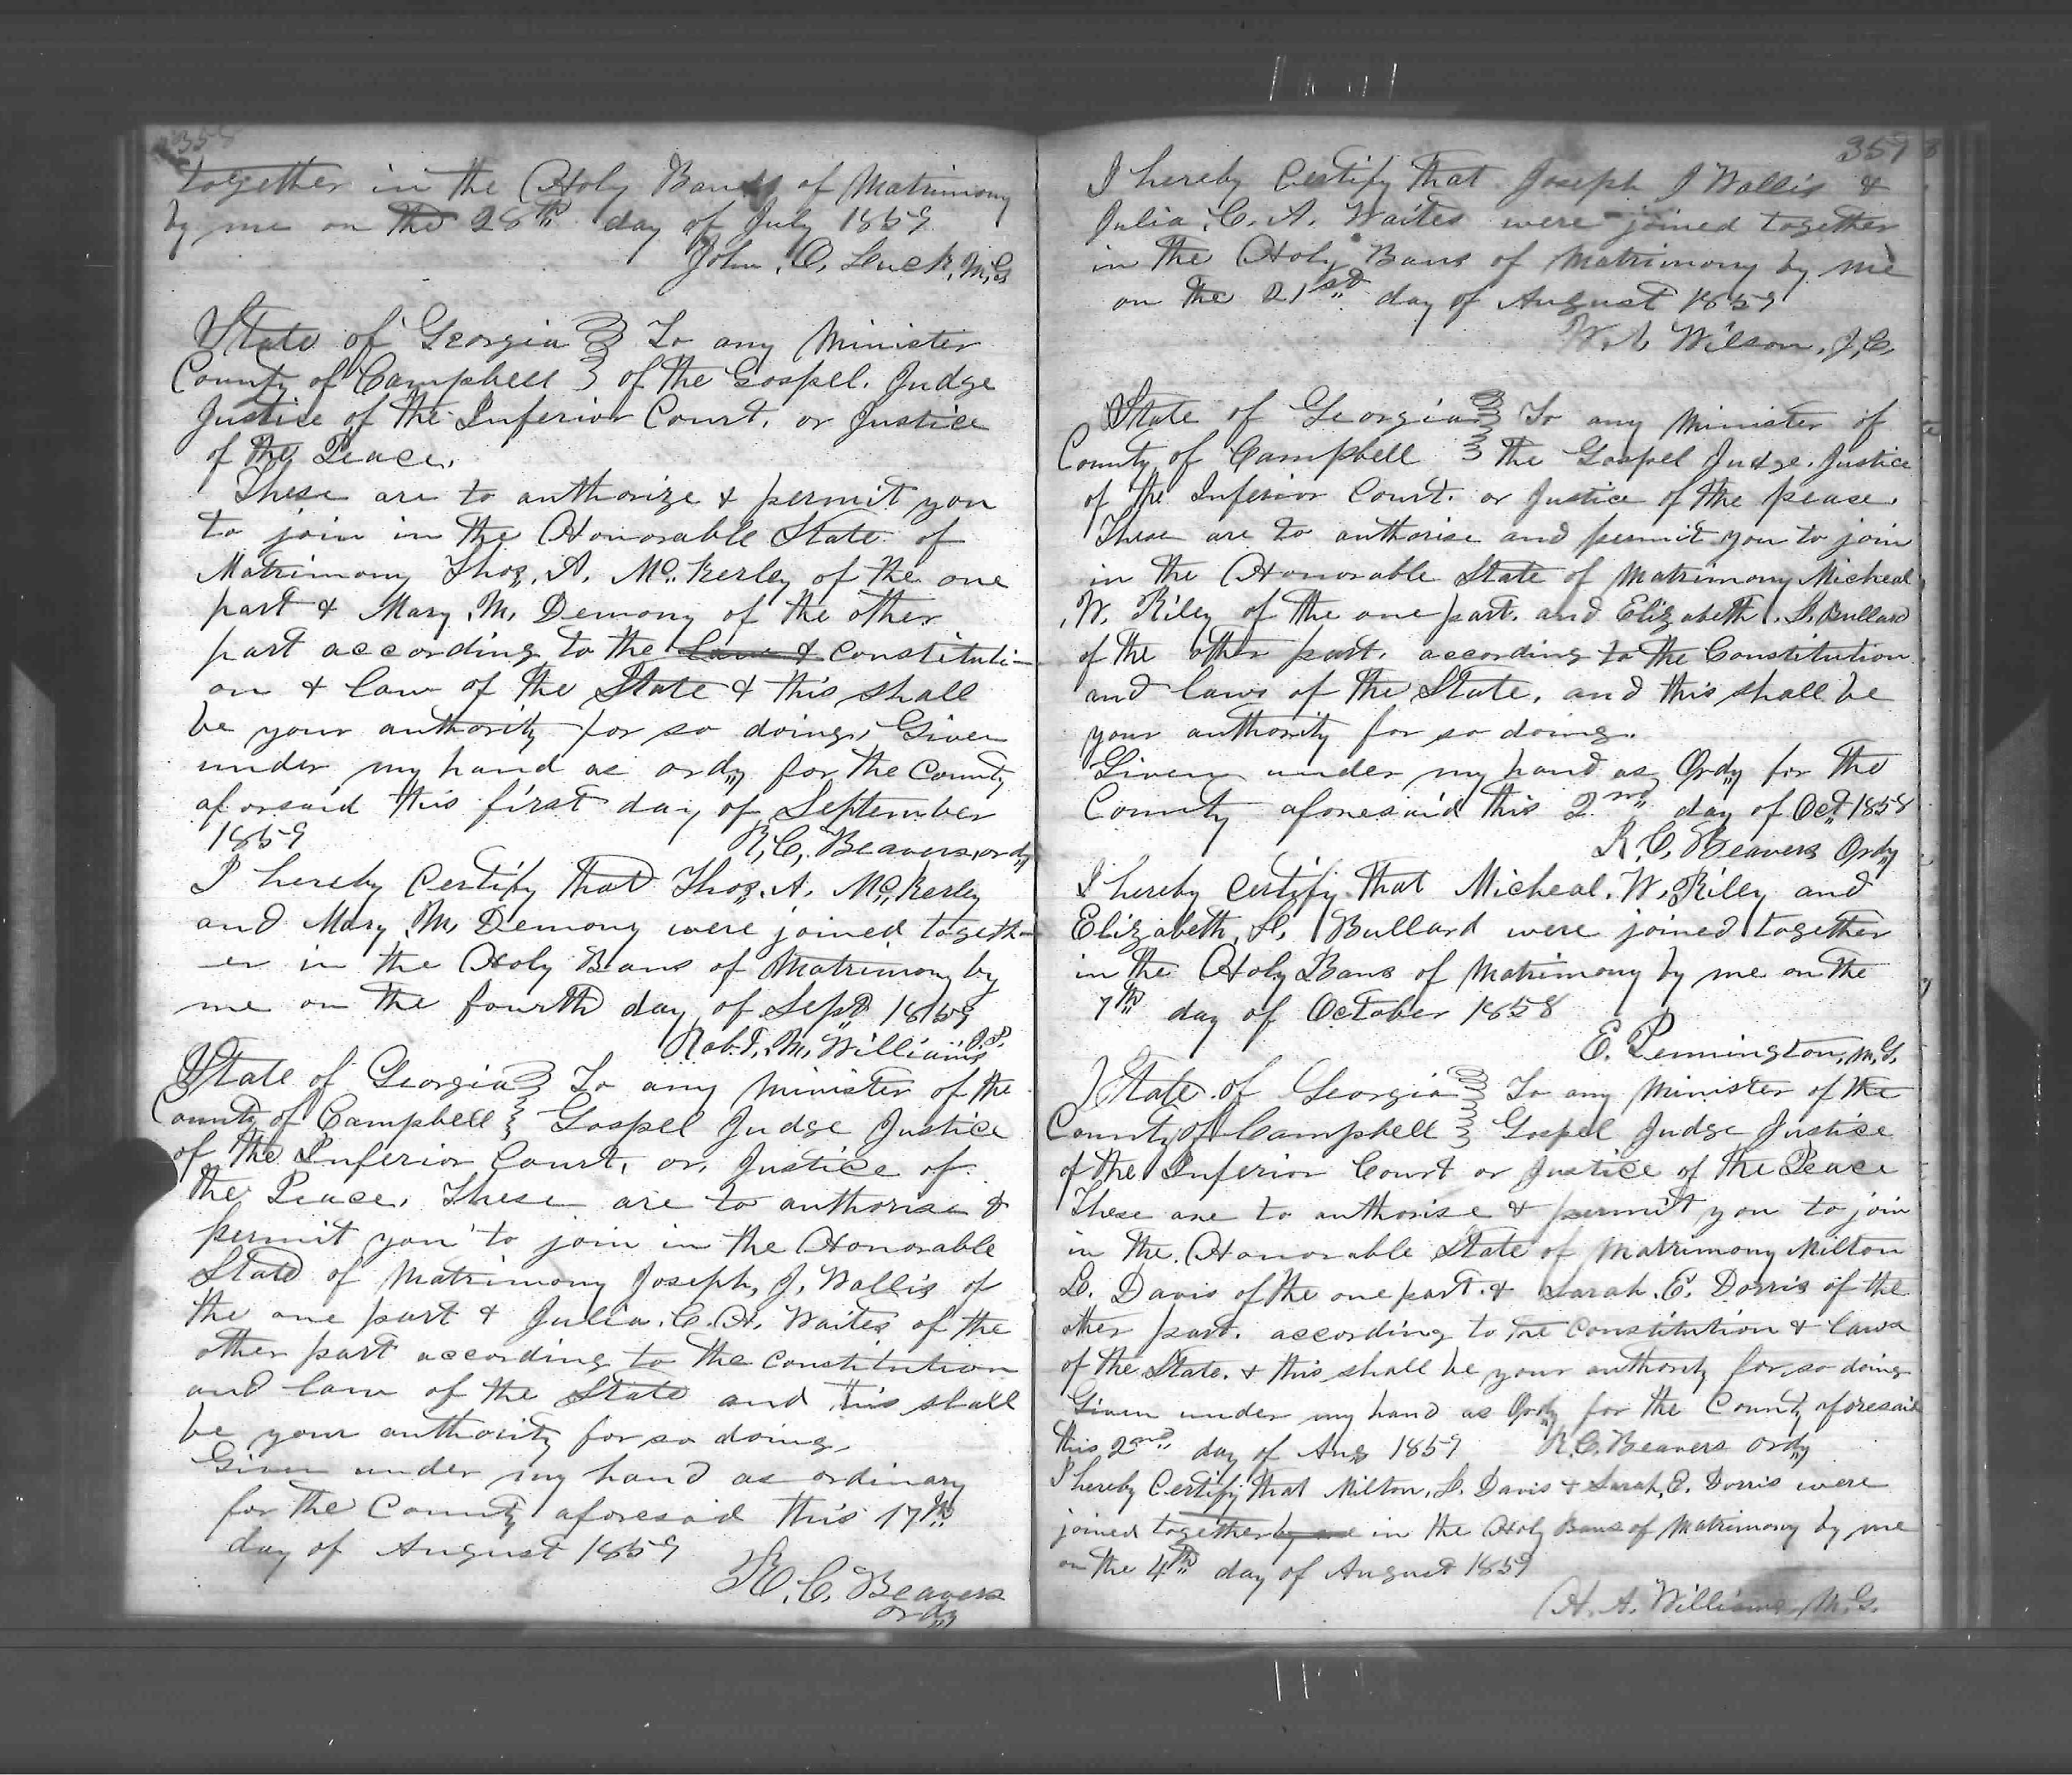 358
together in the Holy Bands of Matrimony
by me on the 28th day of July 1859
John, C, Luck, M,G
State of Georgia } To any Minister
County of Campbell } of the Gospel. Judge
Justice of the Inferior Court, or Justice
of the Peace.
These are to authorize & permit you
to join in the Honorable State of
Matrimony Thos, A, Mc,Kerley of the one
part & Mary, M, Demony of the other
part according to the Law & Constituti-
on & law of the State & this shall
be your authority for so doing, Given
under my hand as ordy for the County
aforsaid this first day of September
1859 R,C, Beavers, ordy
I hereby Certify that Thos, A, Mc,Kerley
and Mary, M, Demony were joined togeth-
er in the Holy Bans of Matrimony by
me on the fourth day of Sept 1859
Robt, M, Williams J.P.
State of Georgia } To any Minister of the
County of Campbell } Gospel Judge Justice
of the Inferior Court, or, Justice of
the Peace, These are to authorise &
permit you to join in the Honorable
State of Matrimony Joseph, J, Wallis of
the one part & Julia, C. A, Waites of the
other part according to the constitution
and law of the State and this shall
be your authority for so doing,
Given under my hand as ordinary
for the County aforesaid this 17th
day of August 1859
R, C, Beavers
ordy
359
I hereby Certify that Joseph J Wallis &
Julia, C. A. Waites were joined together
in the Holy Bans of Matrimony by me
on the 21st day of August 1859
W. A Wilson, J,C,
State of Georgia } To any Minister of
County of Campbell } the Gospel Judge. Justice
of the Inferior Court. or Justice of the pease.
These are to authorise and permit you to join
in the Honorable State of Matrimony Micheal
W. Riley of the one part. and Elizabeth, S, Bullard
of the other part. according to the Constitution
and laws of the State. and this shall be
your authority for so doing.
Given under my hand as Ordy for the
County aforesaid this 2nd day of Oct 1858
R. C, Beavers Ordy
I hereby certify that Micheal. W, Riley and
Elizabeth, S, Bullard were joined together
in the Holy Bans of Matrimony by me on the
7th day of October 1858
E. Pennington, M,G,
State of Georgia } To any Minister of the
County of Campbell } Gospel Judge Justice
of the Inferior Court or Justice of the Peace
These are to authorise & permit you to join
in the Honorable State of Matrimony Milton
L. Davis of the one part. & Sarah. E. Dorris of the
other part. according to the constitution & laws
of the State. & this shall be your authority for so doing
Given under my hand as Ordy for the County aforesaid
this 2nd day of Aug 1859 R.C. Beavers Ordy
I hereby Certify that Milton, L. Davis & Sarah, E. Dorris were
joined together by me in the Holy Bans of Matrimony by me
on the 4th day of August 1859
H. A. Williams M.G.